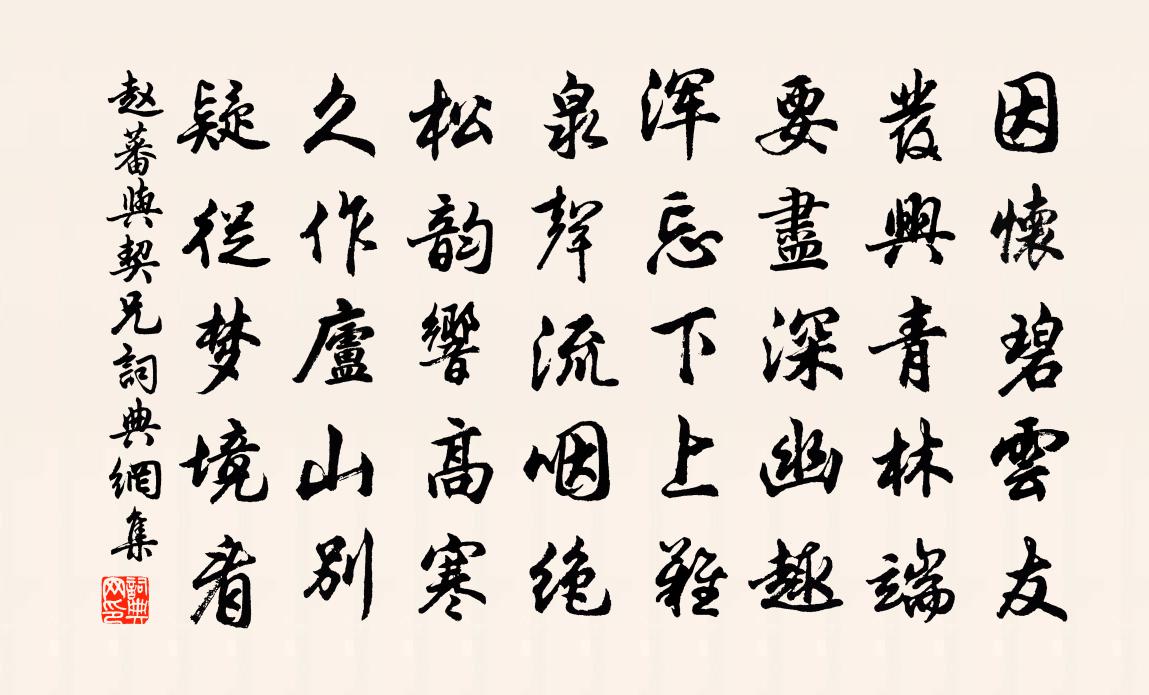 因懷碧雲友
發興青林端
要盡深幽趣
浑忘下上難
泉聲流咽絶
松韵響高寒
久作廬山別
疑從梦境看
赵蕃與契兄詞典網集
詞典网印